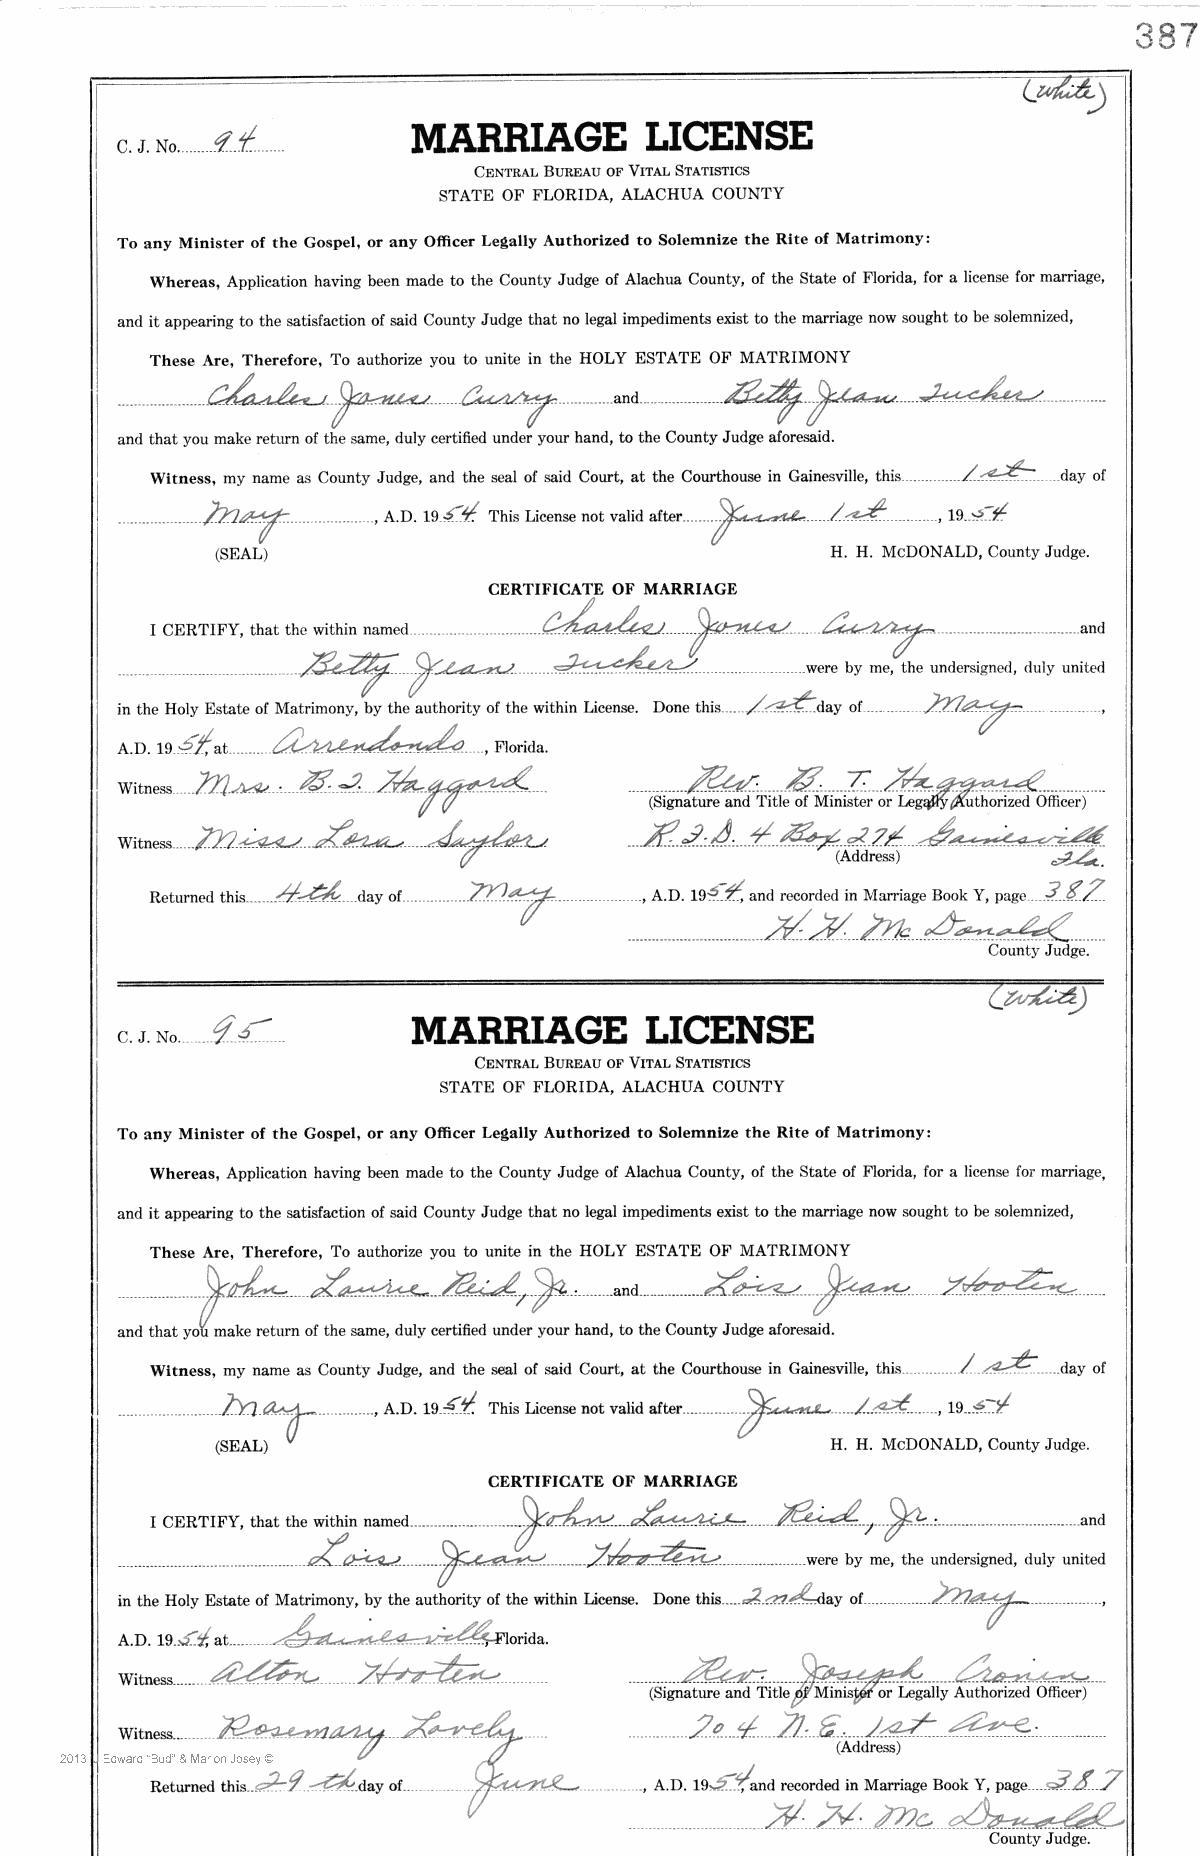 387
(White)
C. J. No. 94 MARRIAGE LICENSE
CENTRAL BUREAU OF VITAL STATISTICS
STATE OF FLORIDA, ALACHUA COUNTY
To any Minister of the Gospel, or any Officer Legally Authorized to Solemnize the Rite of Matrimony:
Whereas, Application having been made to the County Judge of Alachua County, of the State of Florida, for a license for marriage,
and it appearing to the satisfaction of said County Judge that no legal impediments exist to the marriage now sought to be solemnized,
These Are, Therefore, To authorize you to unite in the HOLY ESTATE OF MATRIMONY
Charles Jones Curry and Betty Jean Tucker
and that you make return of the same, duly certified under your hand, to the County Judge aforesaid.
Witness, my name as County Judge, and the seal of said Court, at the Courthouse in Gainesville, this 1st day of
May, A.D. 1954. This License not valid after June 1st, 1954
(SEAL) H. H. McDONALD, County Judge.
CERTIFICATE OF MARRIAGE
I CERTIFY, that the within named Charles Jones Curry and
Betty Jean Tucker were by me, the undersigned, duly united
in the Holy Estate of Matrimony, by the authority of the within License. Done this 1st day of May,
A.D. 1954, at Arrendondo, Florida.
Witness Mrs. B. T. Haggard Rev. B. T. Haggard
(Signature and Title of Minister or Legally Authorized Officer)
Witness Miss Lora Saylor R.F.D. 4 Box 274 Gainesville
(Address) Fla.
Returned this 4th day of May, A.D. 1954, and recorded in Marriage Book Y, page 387
H. H. McDonald
County Judge.
(White)
C. J. No. 95 MARRIAGE LICENSE
CENTRAL BUREAU OF VITAL STATISTICS
STATE OF FLORIDA, ALACHUA COUNTY
To any Minister of the Gospel, or any Officer Legally Authorized to Solemnize the Rite of Matrimony:
Whereas, Application having been made to the County Judge of Alachua County, of the State of Florida, for a license for marriage,
and it appearing to the satisfaction of said County Judge that no legal impediments exist to the marriage now sought to be solemnized,
These Are, Therefore, To authorize you to unite in the HOLY ESTATE OF MATRIMONY
John Laurie Reid, Jr. and Lois Jean Hooten
and that you make return of the same, duly certified under your hand, to the County Judge aforesaid.
Witness, my name as County Judge, and the seal of said Court, at the Courthouse in Gainesville, this 1st day of
May, A.D. 1954. This License not valid after June 1st, 1954
(SEAL) H. H. McDONALD, County Judge.
CERTIFICATE OF MARRIAGE
I CERTIFY, that the within named John Laurie Reid, Jr. and
Lois Jean Hooten were by me, the undersigned, duly united
in the Holy Estate of Matrimony, by the authority of the within License. Done this 2nd day of May,
A.D. 1954, at Gainesville, Florida.
Witness Alton Hooten Rev. Joseph Cronin
(Signature and Title of Minister or Legally Authorized Officer)
Witness Rosemary Lovely 704 N.E. 1st Ave.
(Address)
2013 Edward "Bud" & Marion Josey ©
Returned this 29th day of June, A.D. 1954, and recorded in Marriage Book Y, page 387
H. H. McDonald
County Judge.